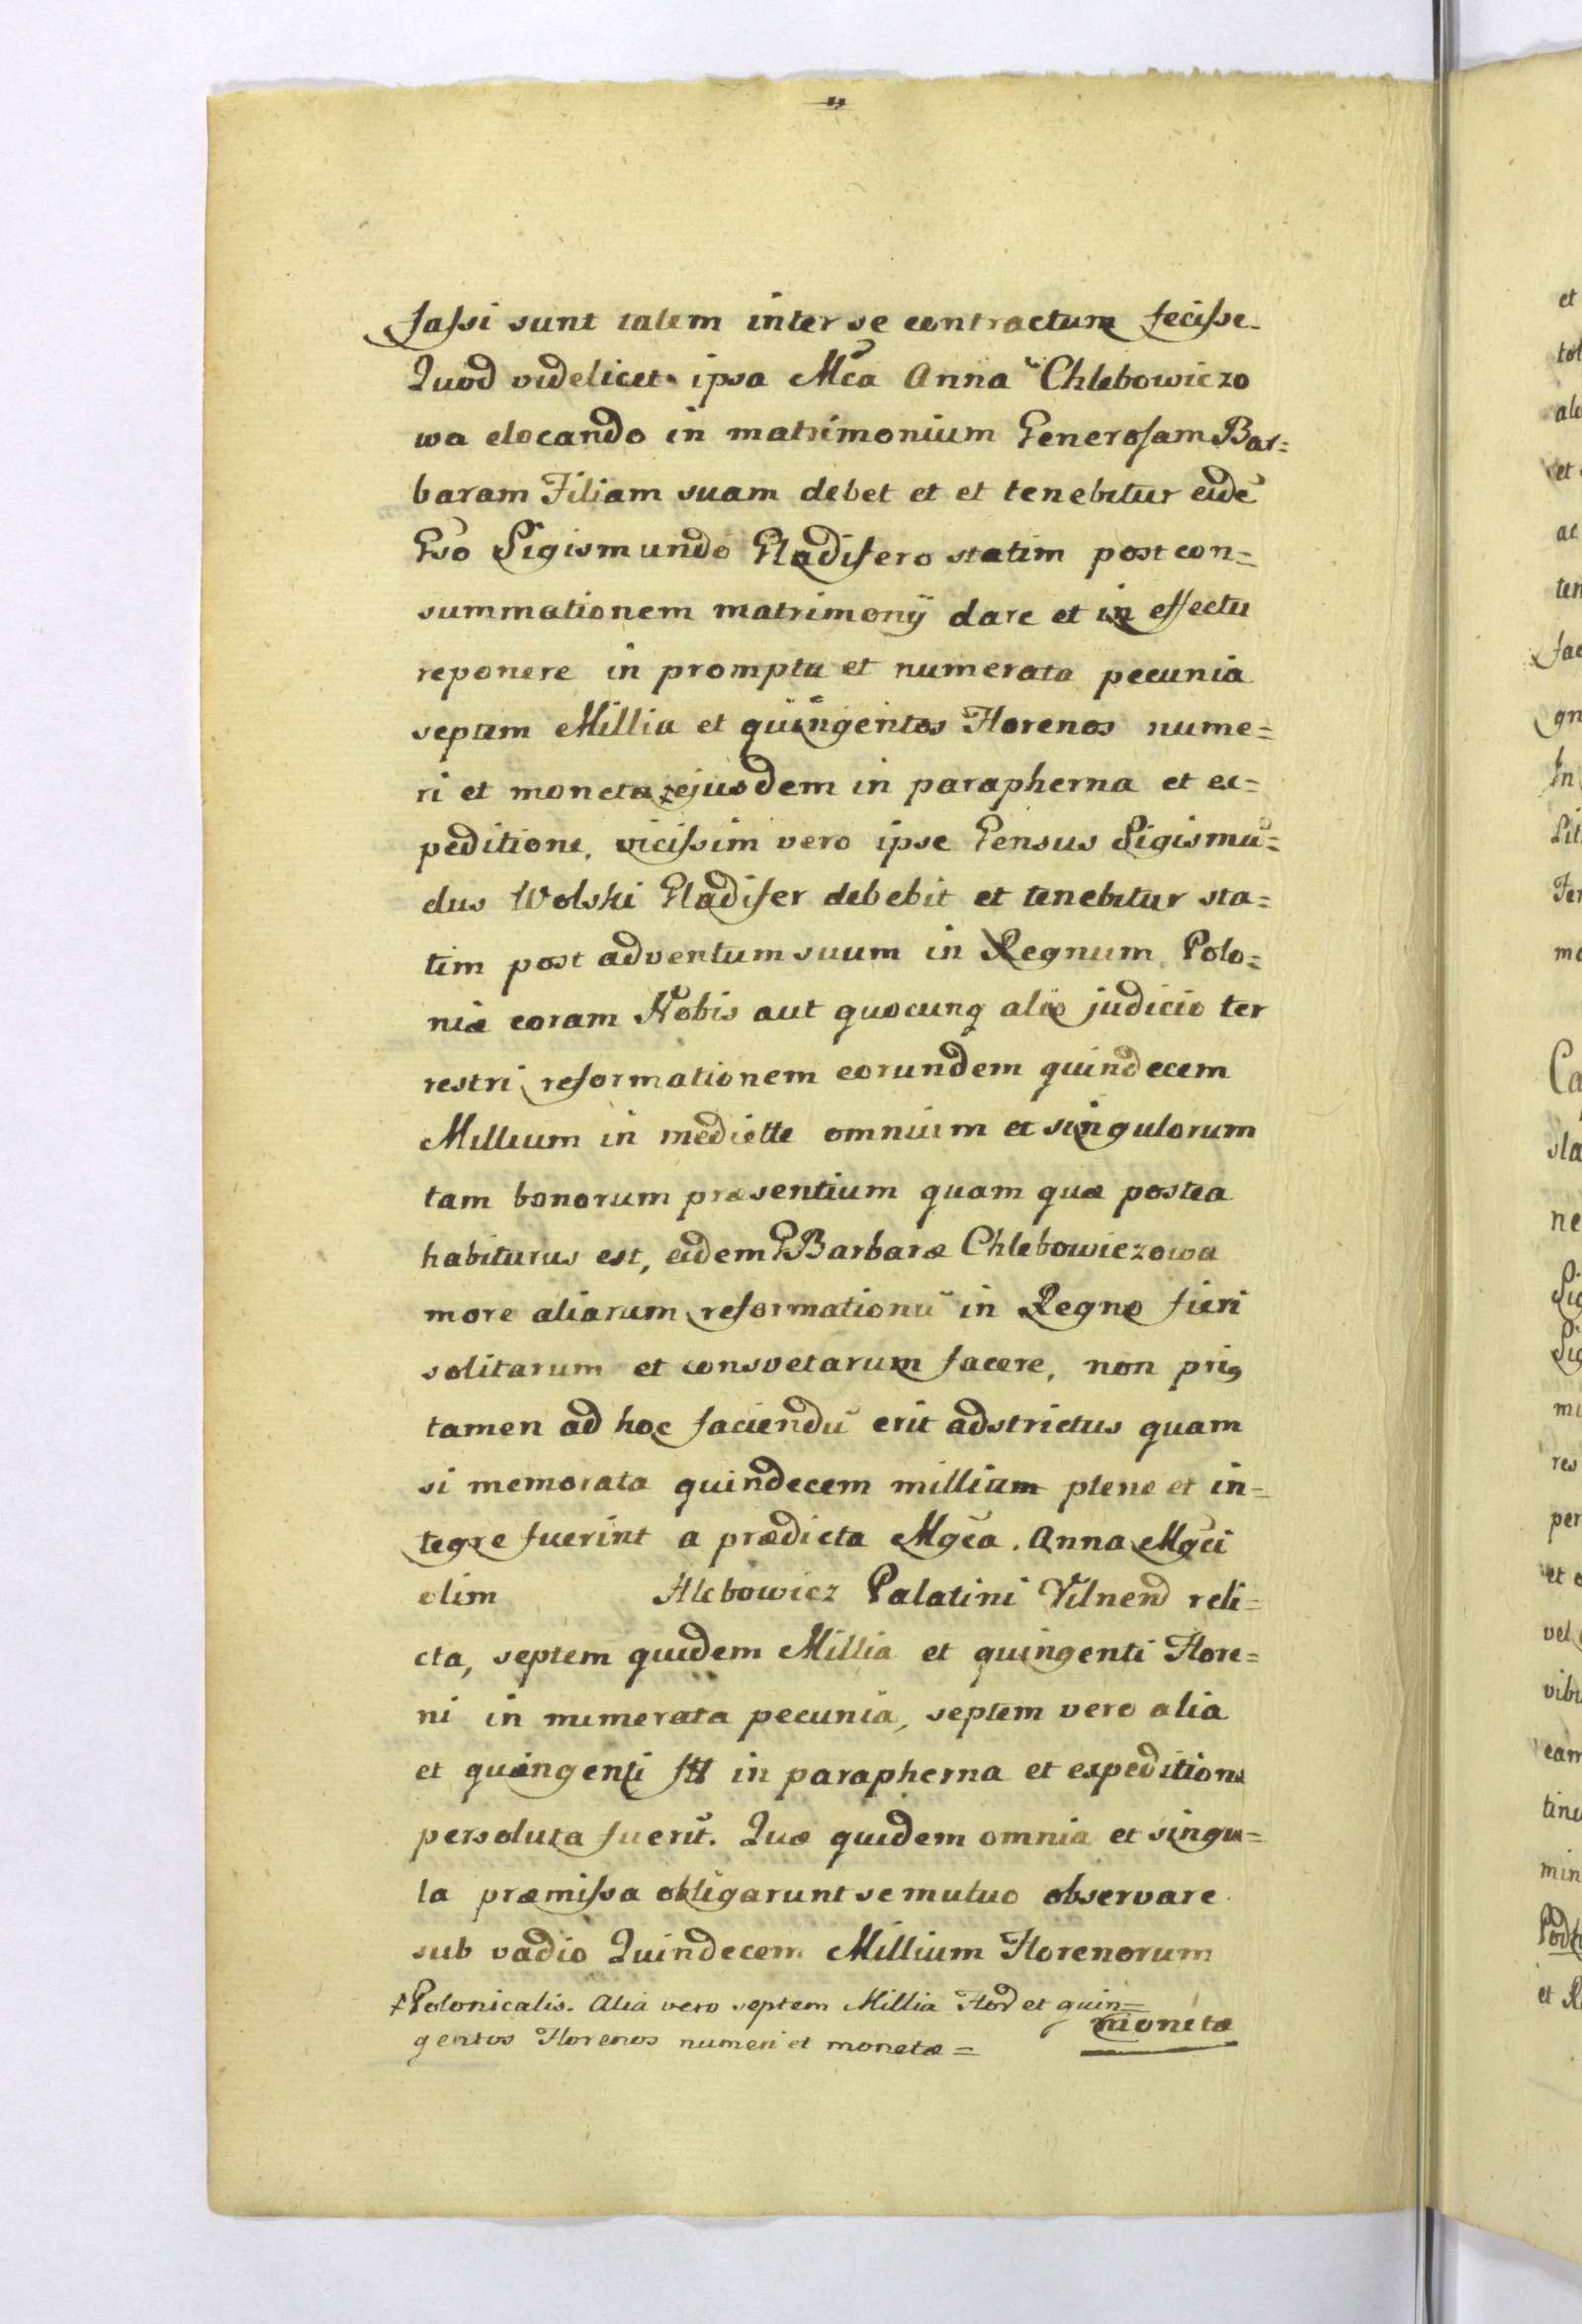 fassi sunt talem inter se contractum fecisse.
Quod videlicet ipsa Mča Anna Chlebowiczo
wa elocando in matrimonium Generosam Bar=
baram Filiam suam debet et et tenebitur eidē
Gso Sigismundo Gladifero statim post con=
summationem matrimonÿ dare et in effectu
reponere in promptu et numerata pecunia
septem Millia et quingentos Florenos nume=
ri et moneta ejusdem in parapherna et ex=
peditione, vicissim vero ipse Gensus Sigismū=
dus Wolski Gladifer debebit et tenebitur sta=
tim post adventum suum in Regnum Polo=
niæ coram Nobis aut quocunq alio judicio ter
restri reformationem eorundem quindecem
Millium in medictte omnium et singulorum
tam bonorum præsentium quam quæ postea
habiturus est, eidem G Barbaræ Chlebowiczowa
more aliarum reformationū in Regno fieri
solitarum et consvetarum facere, non prig
tamen ad hoc faciendū erit adstrictus quam
si memorata quindecem millium plene et in=
tegre fuerint a prædicta Mgča. Anna Mgči
olim Hlebowicz Palatini Vilnend reli=
cta, septem quidem Millia et quingenti Flore=
ni in numerata pecunia, septem vero alia
et quingenti fll in parapherna et expeditione
persoluta fuerīt. Quæ quidem omnia et singu=
la præmissa obligarunt se mutuo observare
sub vadio Quindecem Millium Florenorum
monetæ
+ Polonicalis. Alia vero septem Millia Flor et quin=
gentos Florenos numeri et monetæ =